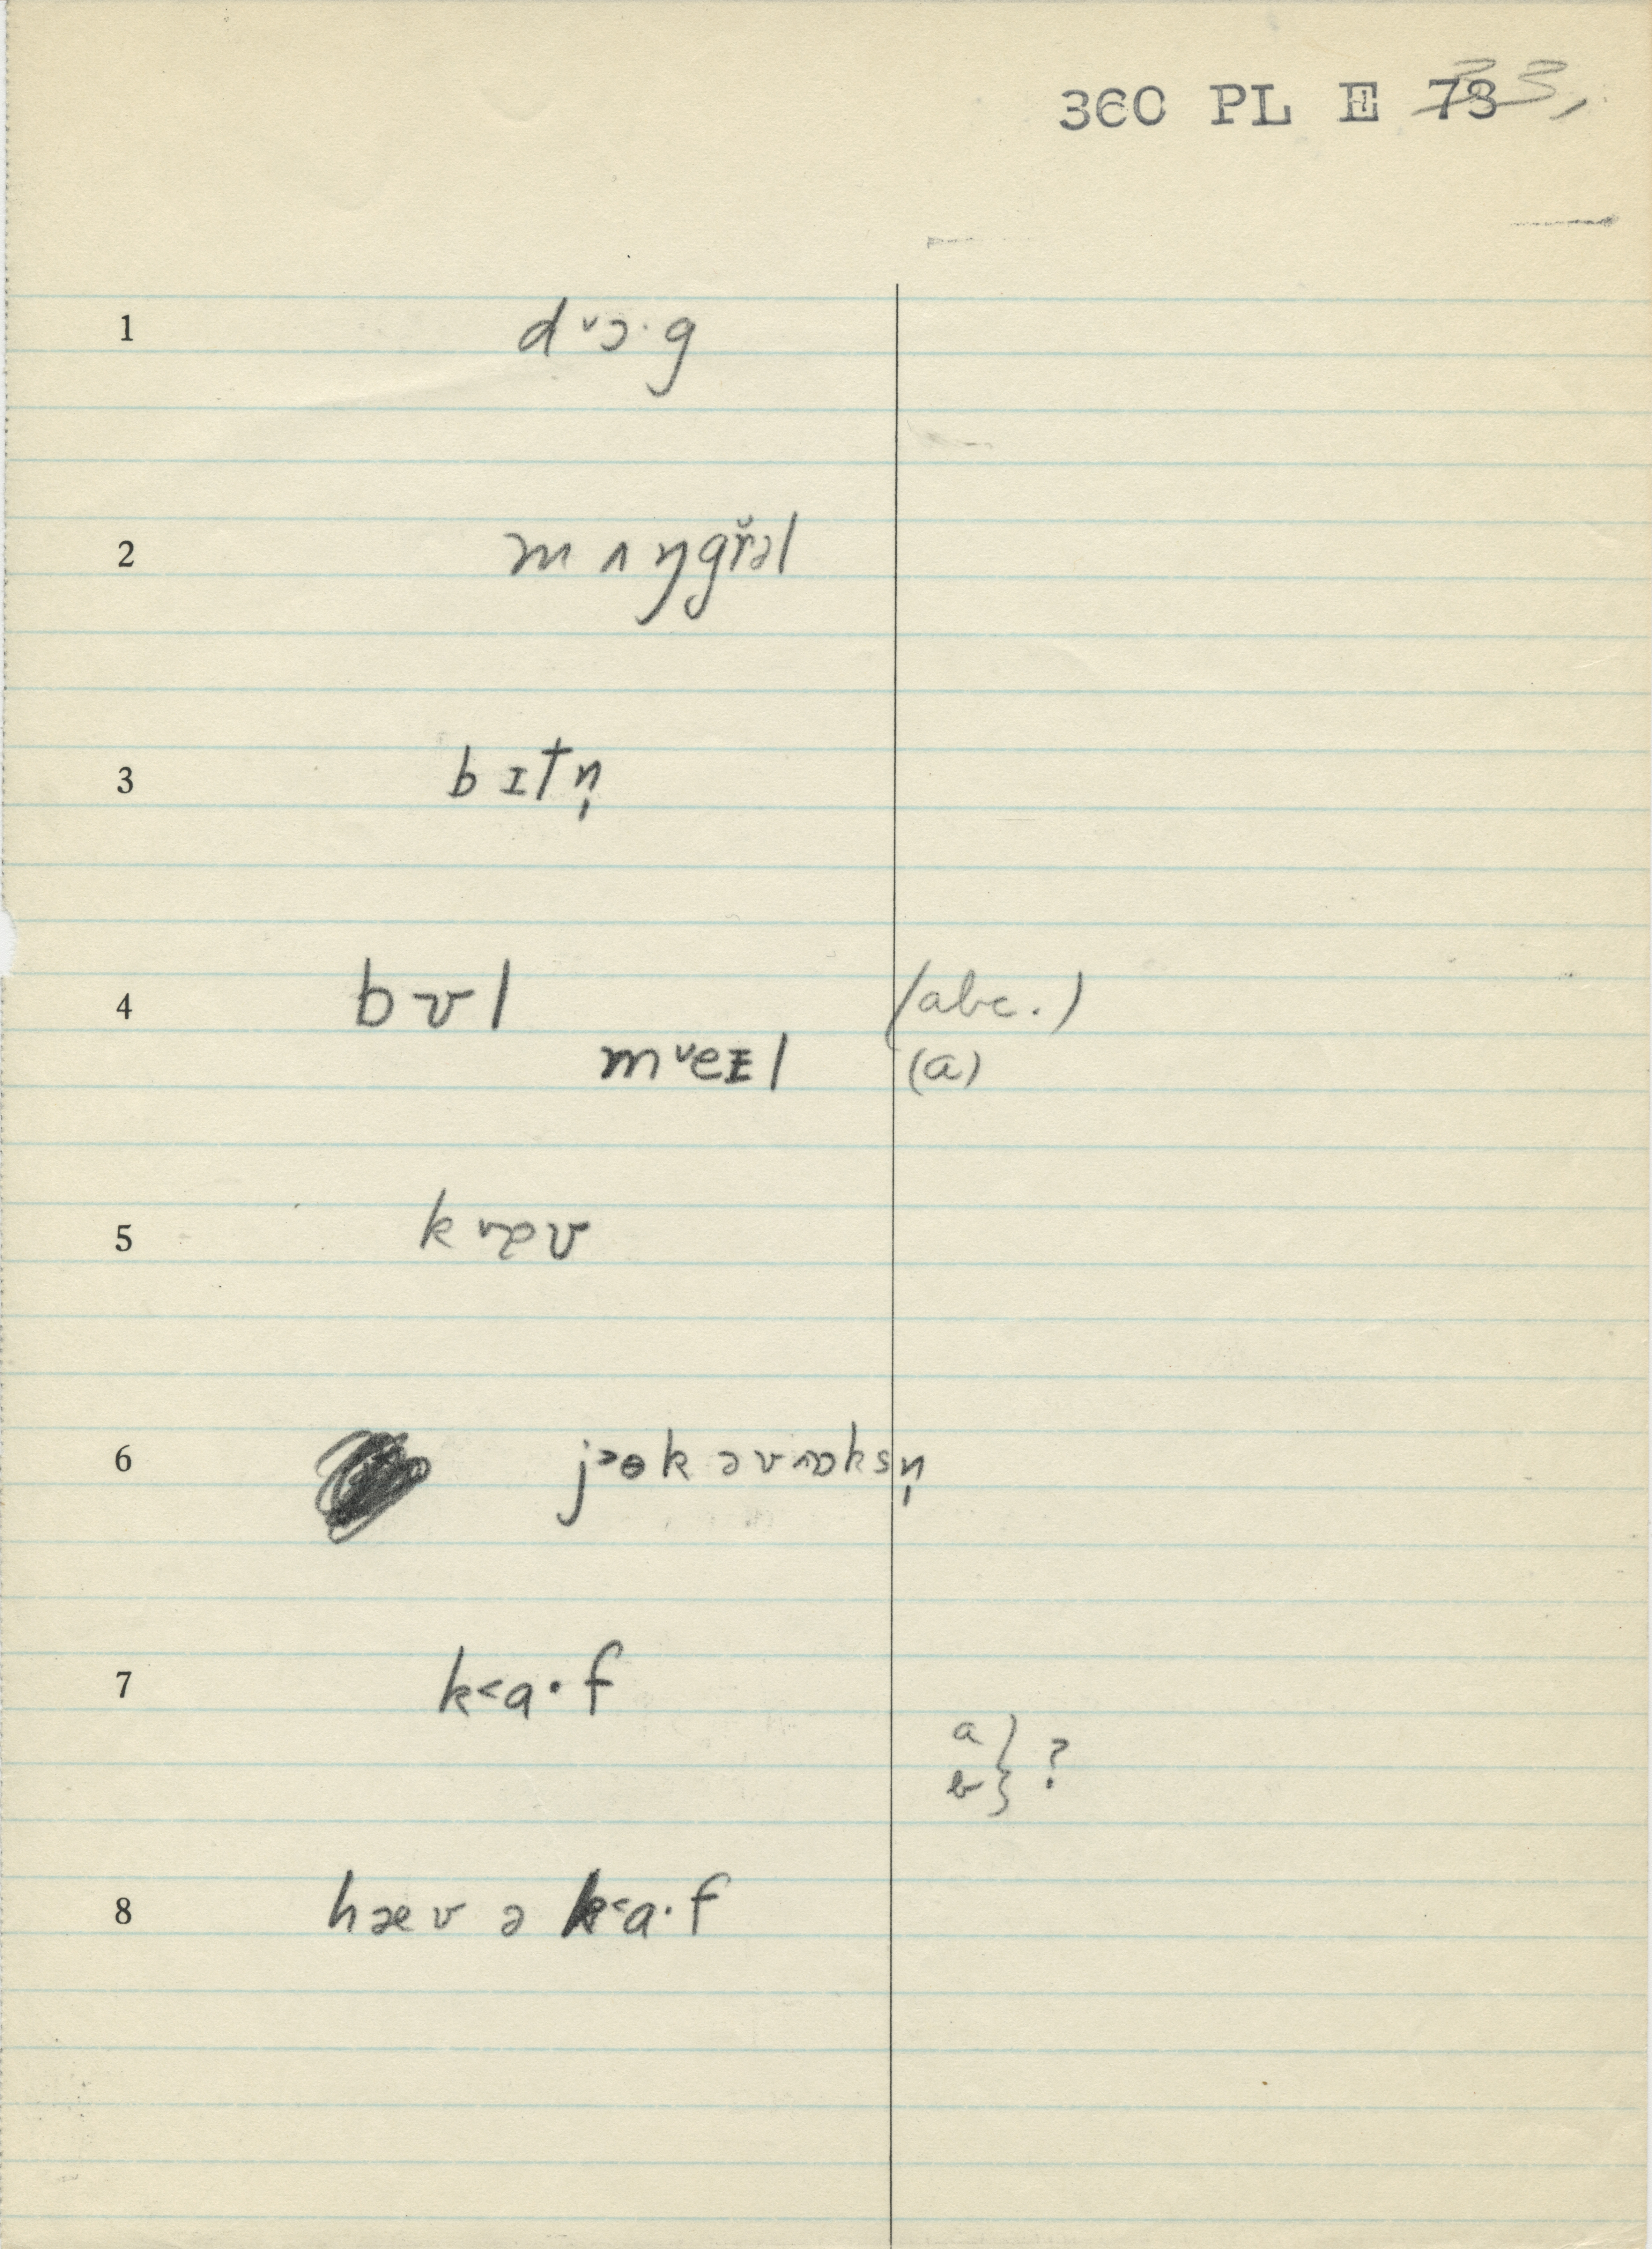 360 PL E 73 33,
1 d ˅ɔ· g
2 m ʌ ŋgřəl
3 b ɪt n̩
4 b ʊ l (abc.)
m ˅eɪ l (a)
5 k ʊ
6 j ɔək əv ɒksn̩
7 k˂a· f
a
b } ?
8 hæv ə k˂a· f